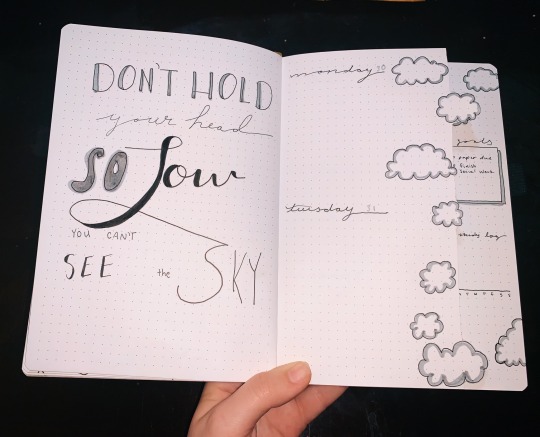 DON'T HOLD
your head
SO low
YOU CAN'T
SEE the SKY
monday 30
tuesday 31
goals
paper due
finish
social work
study log